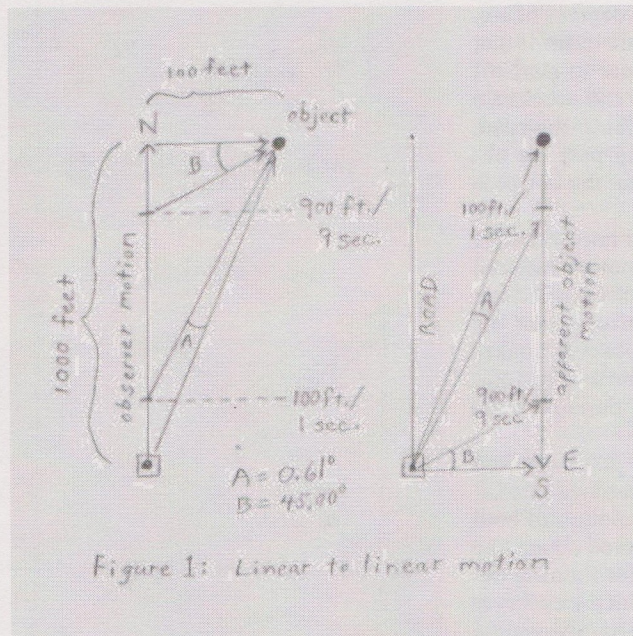 100 feet
object
N
B
900 ft./
9 sec.
1000 feet
observer motion
A
100 ft./
1 sec.
A = 0.61°
B = 45.00°
100 ft./
1 sec.
A
ROAD
apparent object
motion
900 ft/
9 sec.
B
E
S
Figure 1: Linear to linear motion